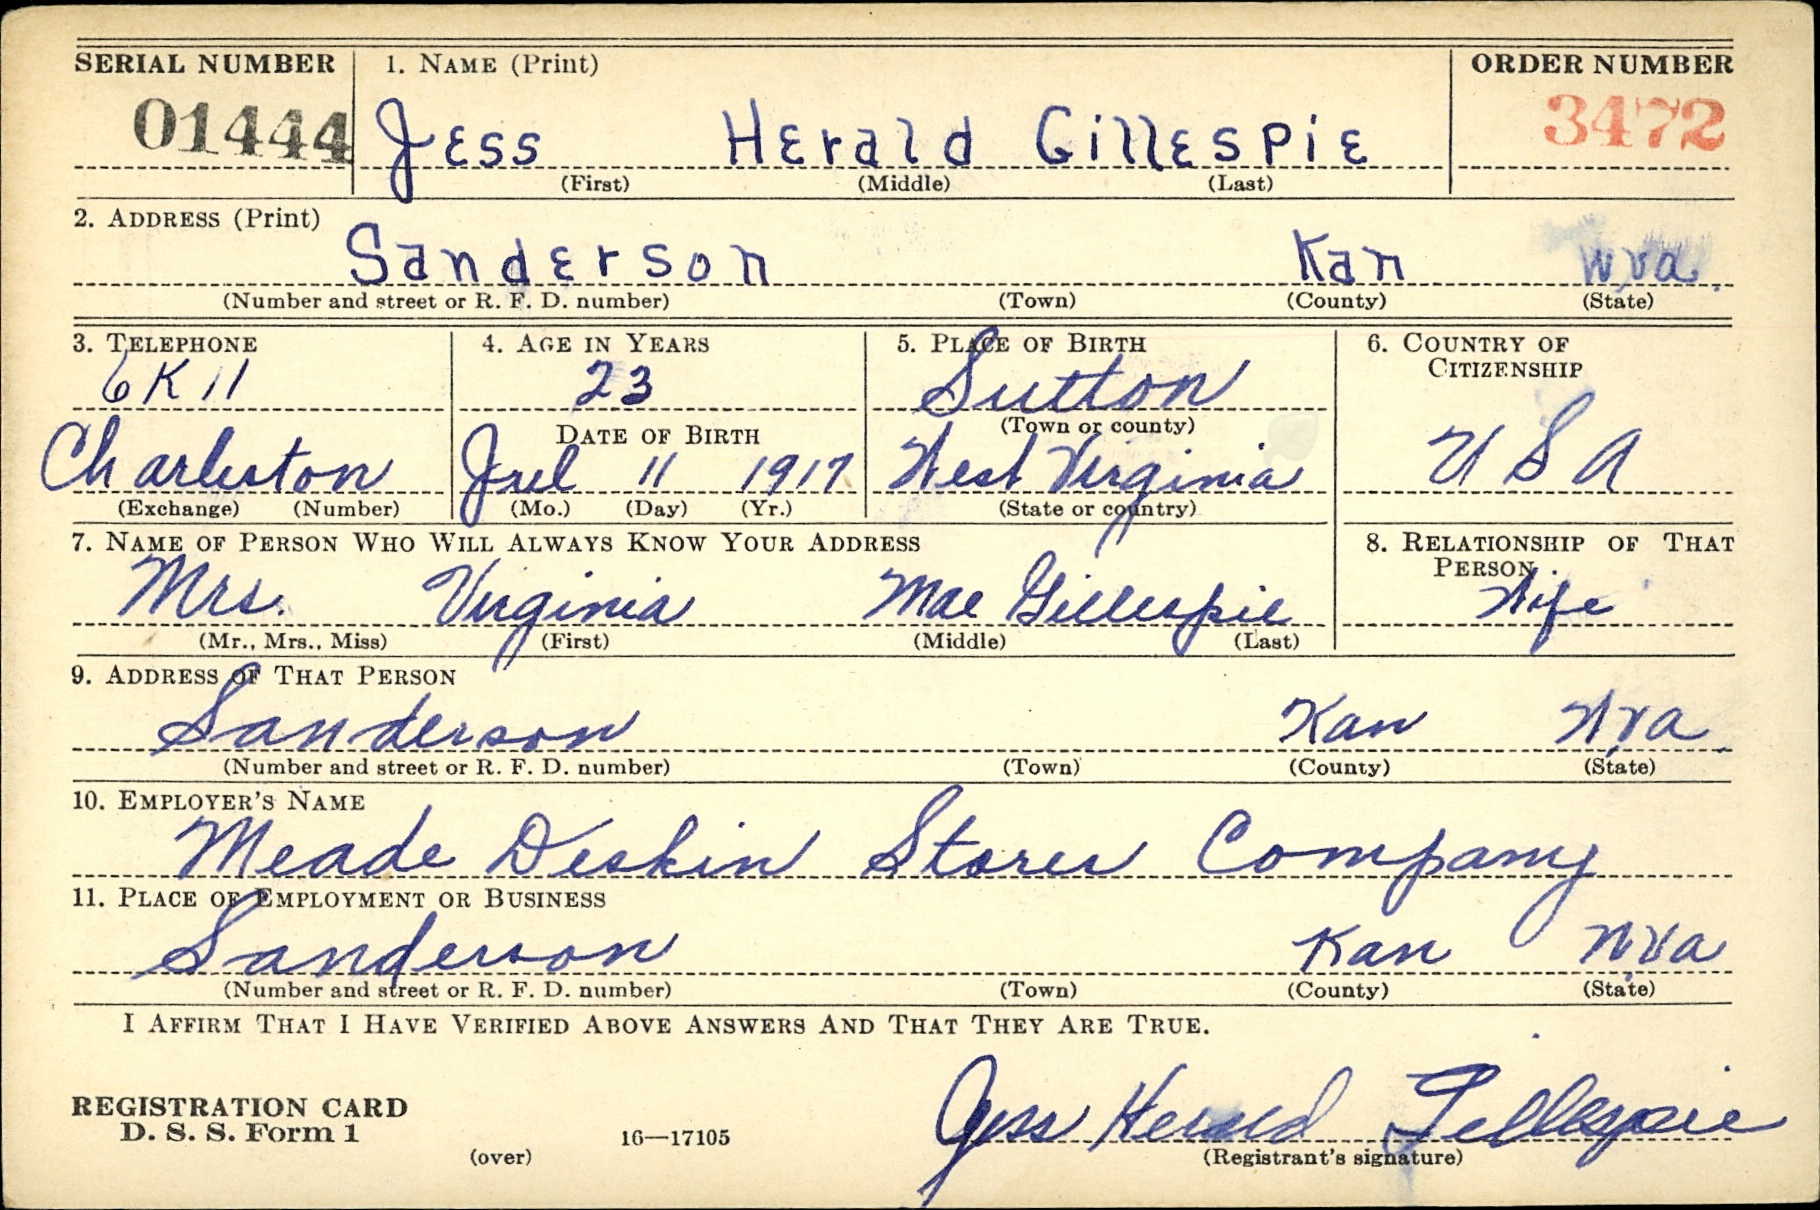 SERIAL NUMBER 1. NAME (Print) ORDER NUMBER
01444 Jess Herald Gillespie 3472
(First) (Middle) (Last)
2. ADDRESS (Print)
Sanderson Kan W va.
(Number and street or R. F. D. number) (Town) (County) (State)
3. TELEPHONE 4. AGE IN YEARS 5. PLACE OF BIRTH 6. COUNTRY OF CITIZENSHIP
6K11 23 Sutton
DATE OF BIRTH (Town or county)
Charleston 11 1917 West Virginia U S A
(Exchange) (Number) (Mo.) (Day) (Yr.) (State or country)
7. NAME OF PERSON WHO WILL ALWAYS KNOW YOUR ADDRESS 8. RELATIONSHIP OF THAT PERSON.
Mrs. Virginia Mae Gillespie Wife
(Mr., Mrs., Miss) (First) (Middle) (Last)
9. ADDRESS OF THAT PERSON
Sanderson Kan W va.
(Number and street or R. F. D. number) (Town) (County) (State)
10. EMPLOYER'S NAME
Meade Deskin Stores Company
11. PLACE OF EMPLOYMENT OR BUSINESS
Sanderson Kan W va
(Number and street or R. F. D. number) (Town) (County) (State)
I AFFIRM THAT I HAVE VERIFIED ABOVE ANSWERS AND THAT THEY ARE TRUE.
REGISTRATION CARD
D. S. S. Form 1 16—17105 Jess Herald Gillespie
(over) (Registrant's signature)